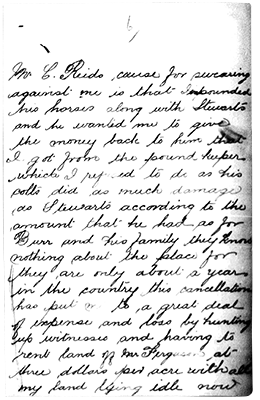 6
Mr C. Reids cause for swearing
against me is that I impounded
his horses along with Stewarts
and he wanted me to give
the money back to him that
I got from the pound keeper
which I to do as his
colts did as much damage
as Stewarts according to the
amount that he had as for
Burr and his family they know
nothing about the place for
they are only about a year
in the country this cancellation
has put to a great deal
of expense and loss by hunting
up witnesses and having to
rent land of Mr Ferguson at
three dollars per acre with all
my land lying idle now